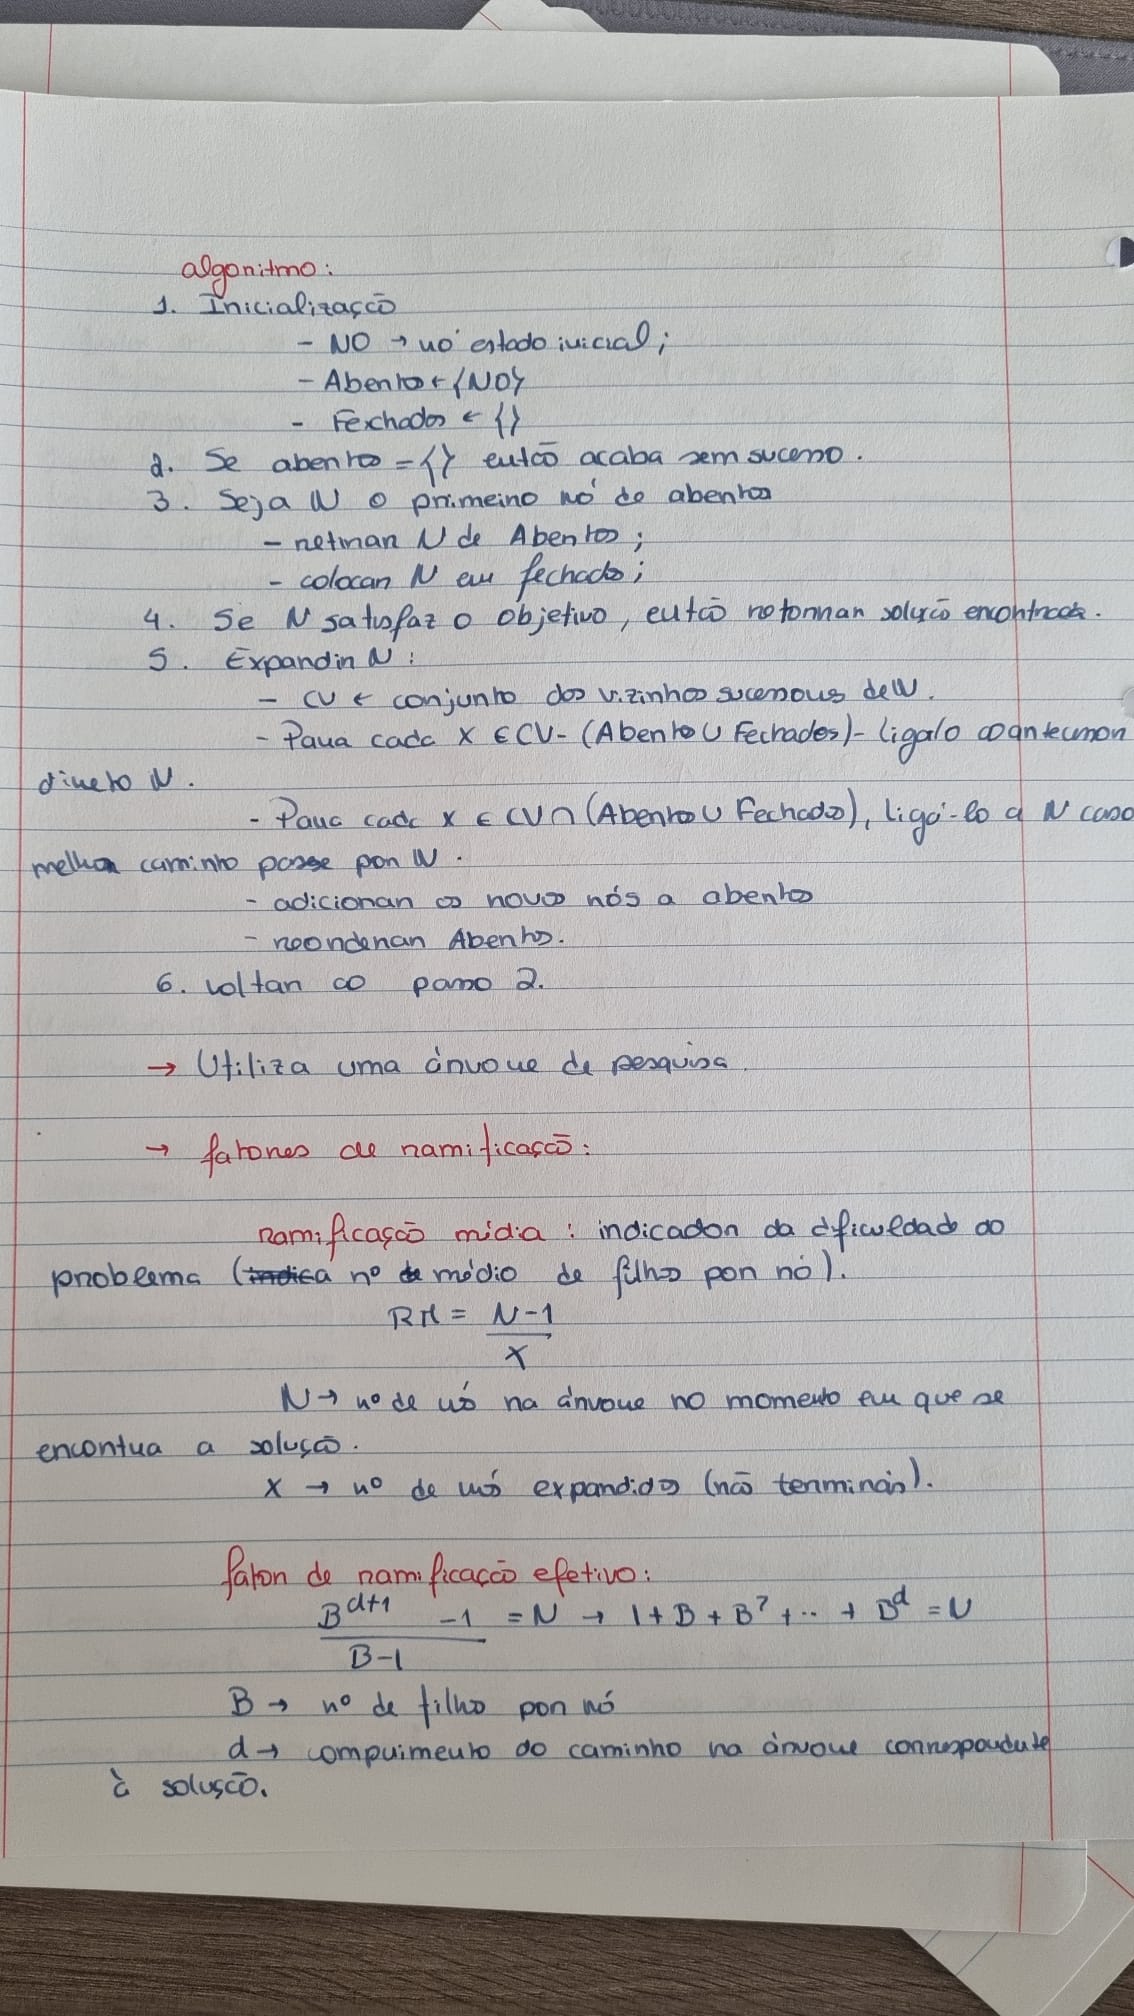 algoritmo:
1. Inicialização
- NO → nó estado inicial;
- Abertos ← {NO}
- Fexchados ← {}
2. Se abertos = {} então acaba sem sucesso.
3. Seja N o primeiro nó de abertos
- retirar N de Abertos;
- colocar N em fechados;
4. Se N satisfaz o objetivo, então retornar solução encontrada.
5. Expandir N:
- CV ← conjunto dos vizinhos sucessores de N.
- Para cada X ∈ CV - (Abertos ∪ Fechados) - ligalo ao antecessor
direto N.
- Para cada X ∈ CV ∩ (Abertos ∪ Fechados), ligá-lo a N caso
melhor caminho passe por N.
- adicionar os novos nós a abertos
- reordenar Abertos.
6. voltar ao passo 2.
→ Utiliza uma árvore de pesquisa.
→ fatores de ramificação:
ramificação média : indicador da dificuldade do
problema (indica nº de médio de filhos por nó).
RM = N-1 / X
N → nº de nós na árvore no momento em que se
encontra a solução.
X → nº de nós expandidos (não terminais).
fator de ramificação efetivo:
B^(d+1) - 1 / B-1 = N → 1 + B + B² + ... + B^d = N
B → nº de filhos por nó
d → comprimento do caminho na árvore correspondente
à solução.